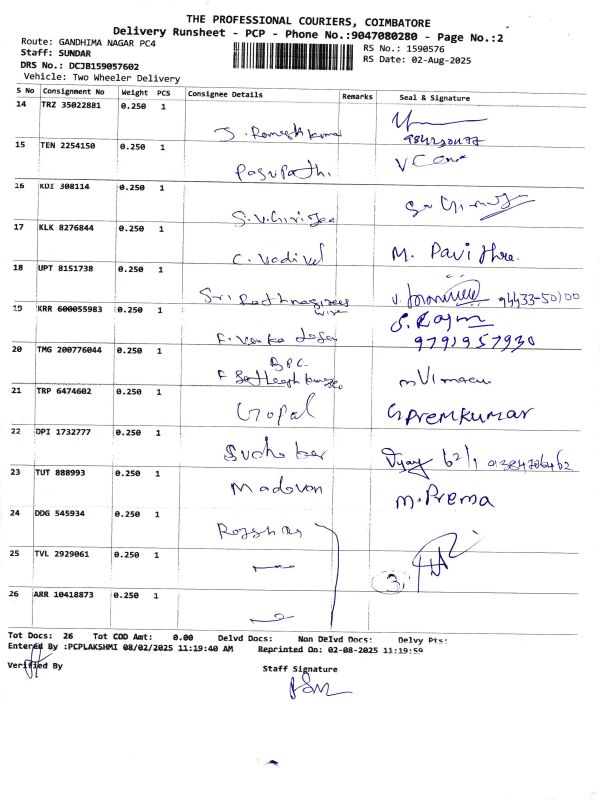 THE PROFESSIONAL COURIERS, COIMBATORE
Delivery Runsheet - PCP - Phone No.:9047080280 - Page No.:2
Route: GANDHIMA NAGAR PC4
RS No.: 1590576
Staff: SUNDAR
RS Date: 02-Aug-2025
DRS No.: DCJB159057602
Vehicle: Two Wheeler Delivery
S No Consignment No Weight PCS Consignee Details Remarks Seal & Signature
14 TRZ 35022881 0.250 1
J. Romesh kumar
15 TEN 2254150 0.250 1
Pasupathi
16 KDI 308114 0.250 1
S.V.Girisja
17 KLK 8276844 0.250 1
C. Vadivel M. Pavithra.
18 UPT 8151738 0.250 1
Sri 94433-50100
19 KRR 600055983 0.250 1
S. Rajm
9791957930
20 TMG 200776044 0.250 1
BPC
21 TRP 6474602 0.250 1
Gopal G Premkumar
22 DPI 1732777 0.250 1
Sudhakar Vijay 62/1
23 TUT 888993 0.250 1
Madavan M. Prema
24 DDG 545934 0.250 1
25 TVL 2929061 0.250 1
3,
26 ARR 10418873 0.250 1
Tot Docs: 26 Tot COD Amt: 0.00 Delvd Docs: Non Delvd Docs: Delvy Pts:
Entered By :PCPLAKSHMI 08/02/2025 11:19:40 AM Reprinted On: 02-08-2025 11:19:59
Verified By Staff Signature